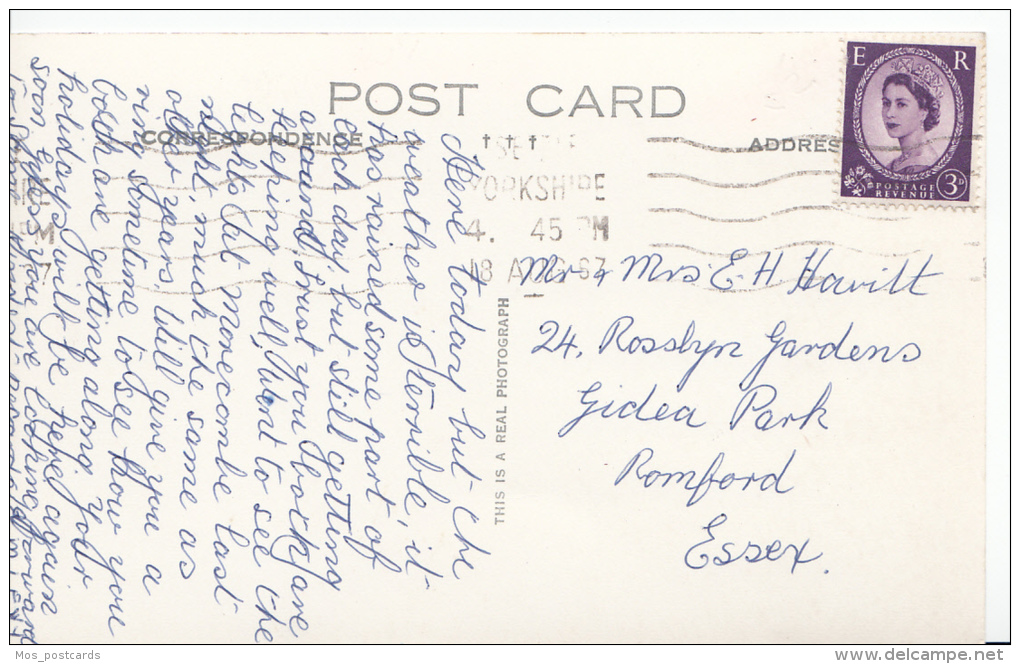 POST CARD
CORRESPONDENCE
ADDRES
E R
POSTAGE
REVENUE
3D
SETTLE
YORKSHIRE
4. 45 PM
18 AUG 67
Here today but the
weather is terrible, it
has rained some part of
each day but still getting
around, trust you both are
keeping well, Went to see the
lights at Morecombe last
night, much the same as
other years. Will give you a
ring sometime to see how you
both are getting along. Your
holidays will be here again
soon, guess you are looking forward
THIS IS A REAL PHOTOGRAPH
Mr & Mrs E H Havitt
24, Rosslyn Gardens
Gidea Park
Romford
Essex.
Mos_postcards
www.delcampe.net